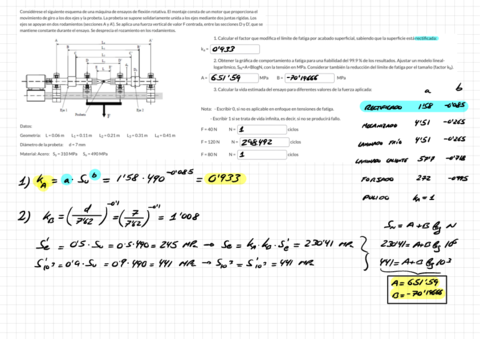 Considérese el siguiente esquema de una máquina de ensayos de flexión rotativa. El montaje consta de un motor que proporciona el
movimiento de giro a los dos ejes y la probeta. La probeta se supone solidariamente unida a los ejes mediante dos juntas rígidas. Los
ejes se apoyan en dos rodamientos (secciones A y A'). Se aplica una fuerza vertical de valor F centrada, entre las secciones D y D', que se
mantiene constante durante el ensayo. Se desprecia el rozamiento en los rodamientos.
Datos:
Geometría: L = 0.06 m L₁ = 0.11 m L₂ = 0.21 m L₃ = 0.31 m L₄ = 0.41 m
Diámetro de la probeta: d = 7 mm
Material: Acero: Sy = 310 MPa Su = 490 MPa
1. Calcular el factor que modifica el límite de fatiga por acabado superficial, sabiendo que la superficie está rectificada:
kₐ = 0'933
2. Obtener la gráfica de comportamiento a fatiga para una fiabilidad del 99.9 % de los resultados. Ajustar un modelo lineal-
logarítmico, Sf=A+B·logN, con la tensión en MPa. Considerar también la reducción del límite de fatiga por el tamaño (factor kb).
A = 651'59 MPa B = -70'19666 MPa
3. Calcular la vida estimada del ensayo para diferentes valores de la fuerza aplicada:
Nota: - Escribir 0, si no es aplicable un enfoque en tensiones de fatiga.
- Escribir 1 si se trata de vida infinita, es decir, si no se producirá fallo.
F = 40 N N = 1 ciclos
F = 120 N N = 298.492 ciclos
F = 80 N N = 1 ciclos
a b
RECTIFICADO 1'58 -0'085
MECANIZADO 4'51 -0'265
LAMINADO FRÍO 4'51 -0'265
LAMINADO CALIENTE 57'7 -0'718
FORJADO 272 -0'995
PULIDO kA = 1
1) kA = a · Su^b = 1'58 · 490^-0'085 = 0'933
2) kB = (d/7'62)^-0'1 = (7/7'62)^-0'1 = 1'008
Se' = 0'5 · Su = 0'5 · 490 = 245 MPa → Se = kA · kb · Se' = 230'41 MPa
S'10³ = 0'9 · Su = 0'9 · 490 = 441 MPa → S10³ = S'10³ = 441 MPa
Sn = A + B log N
230'41 = A + B log 10⁶
441 = A + B log 10³
A = 651'59
B = -70'19666